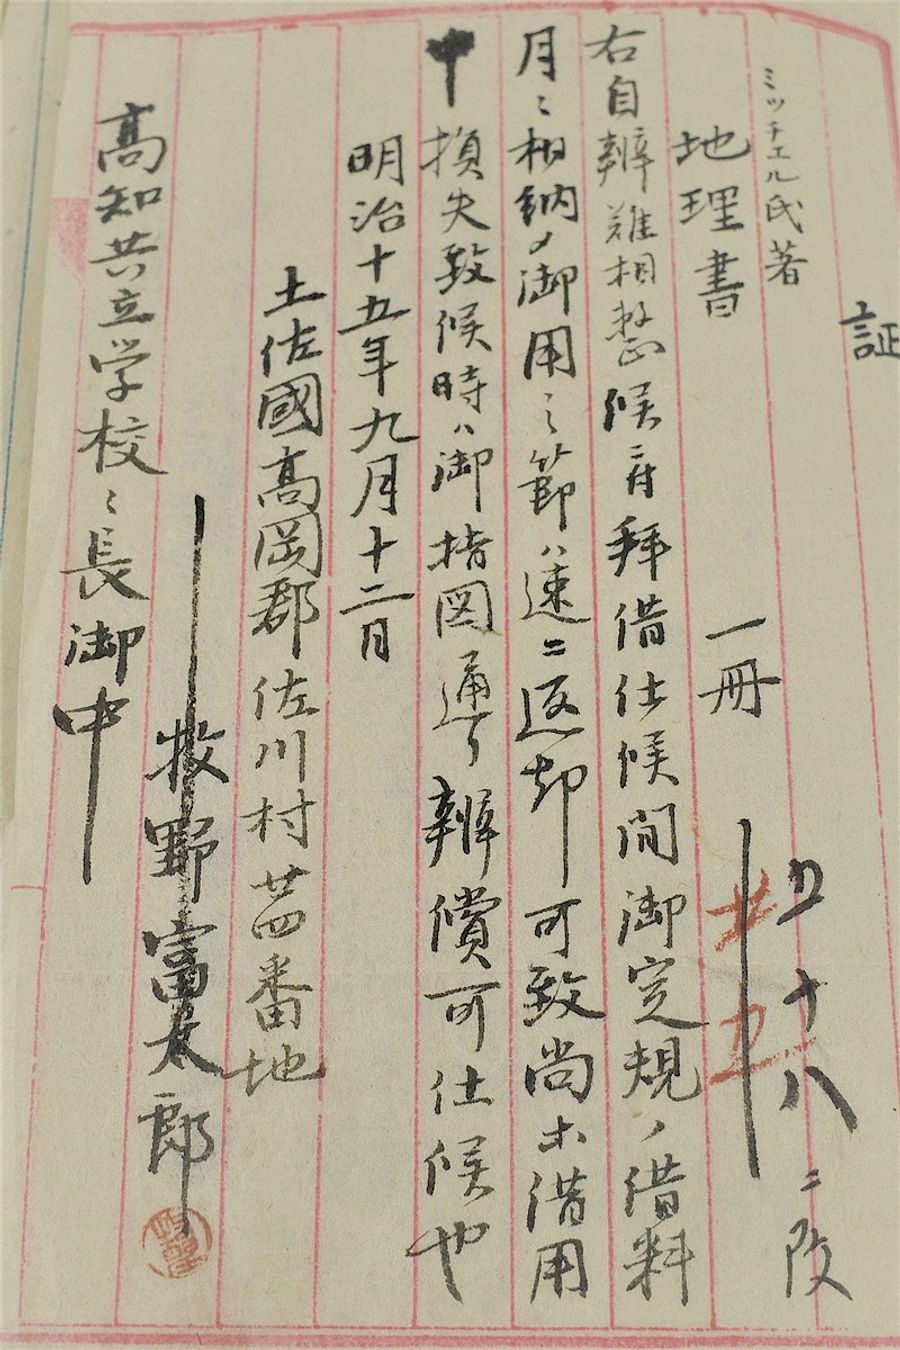 証
ミッチエル氏著
地理書 一冊
五十八ニ改
廿五
右自辨難相整候ニ付拜借仕候間御定規ノ借料
月ミ相納メ御用之節ハ速ニ返却可致尚ホ借用
中損失致候時ハ御指図通リ辨償可仕候也
明治十五年九月十二日
土佐國高岡郡佐川村廿四番地
牧野富太郎
高知共立学校ミ長御中